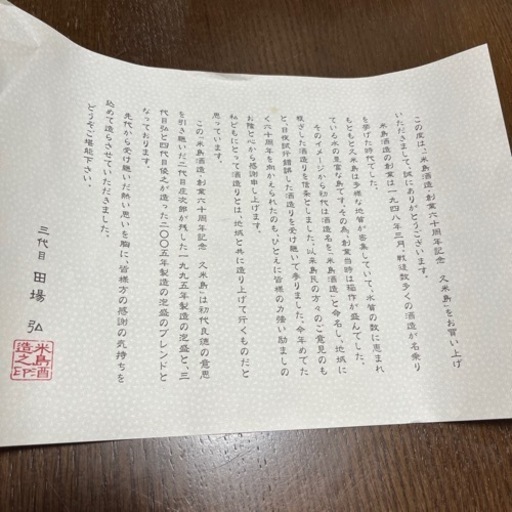 この度は、「米島酒造・創業六十周年記念　久米島」をお買い上げ
いただきまして、誠にありがとうございます。
米島酒造の創業は一九四八年三月、戦後数多くの酒造が名乗り
を挙げた時代でした。
もともと久米島は多様な地質が密集していて、水質の数に恵まれ
ている水の豊富な島です。その為、創業当時は稲作が盛んでした。
そのイメージから初代は酒造名を「米島酒造」と命名し、地域に
根ざした酒造りを信条としました。以来島民の方々のご意見のも
と、日夜試行錯誤した酒造りを受け継いで参りました。今年めでた
く六十周年を向かえられたのも、ひとえに皆様の力強い励ましの
お陰と心から感謝申し上げます。
私どもにとって酒造りとは、地域と共に造り上げて行くものだと
思っています。
この「米島酒造・創業六十周年記念　久米島」は初代良徳の意思
を引き継いだ二代目彦次郎が残した一九九五年製造の泡盛と、三
代目弘と四代目優之が造った二〇〇五年製造の泡盛のブレンドと
なっております。
先代から受け継いだ熱い思いを胸に、皆様方の感謝の気持ちを
込めて造らさせていただきました。
どうぞご堪能下さい。
三代目　田場　弘
米島酒造之印